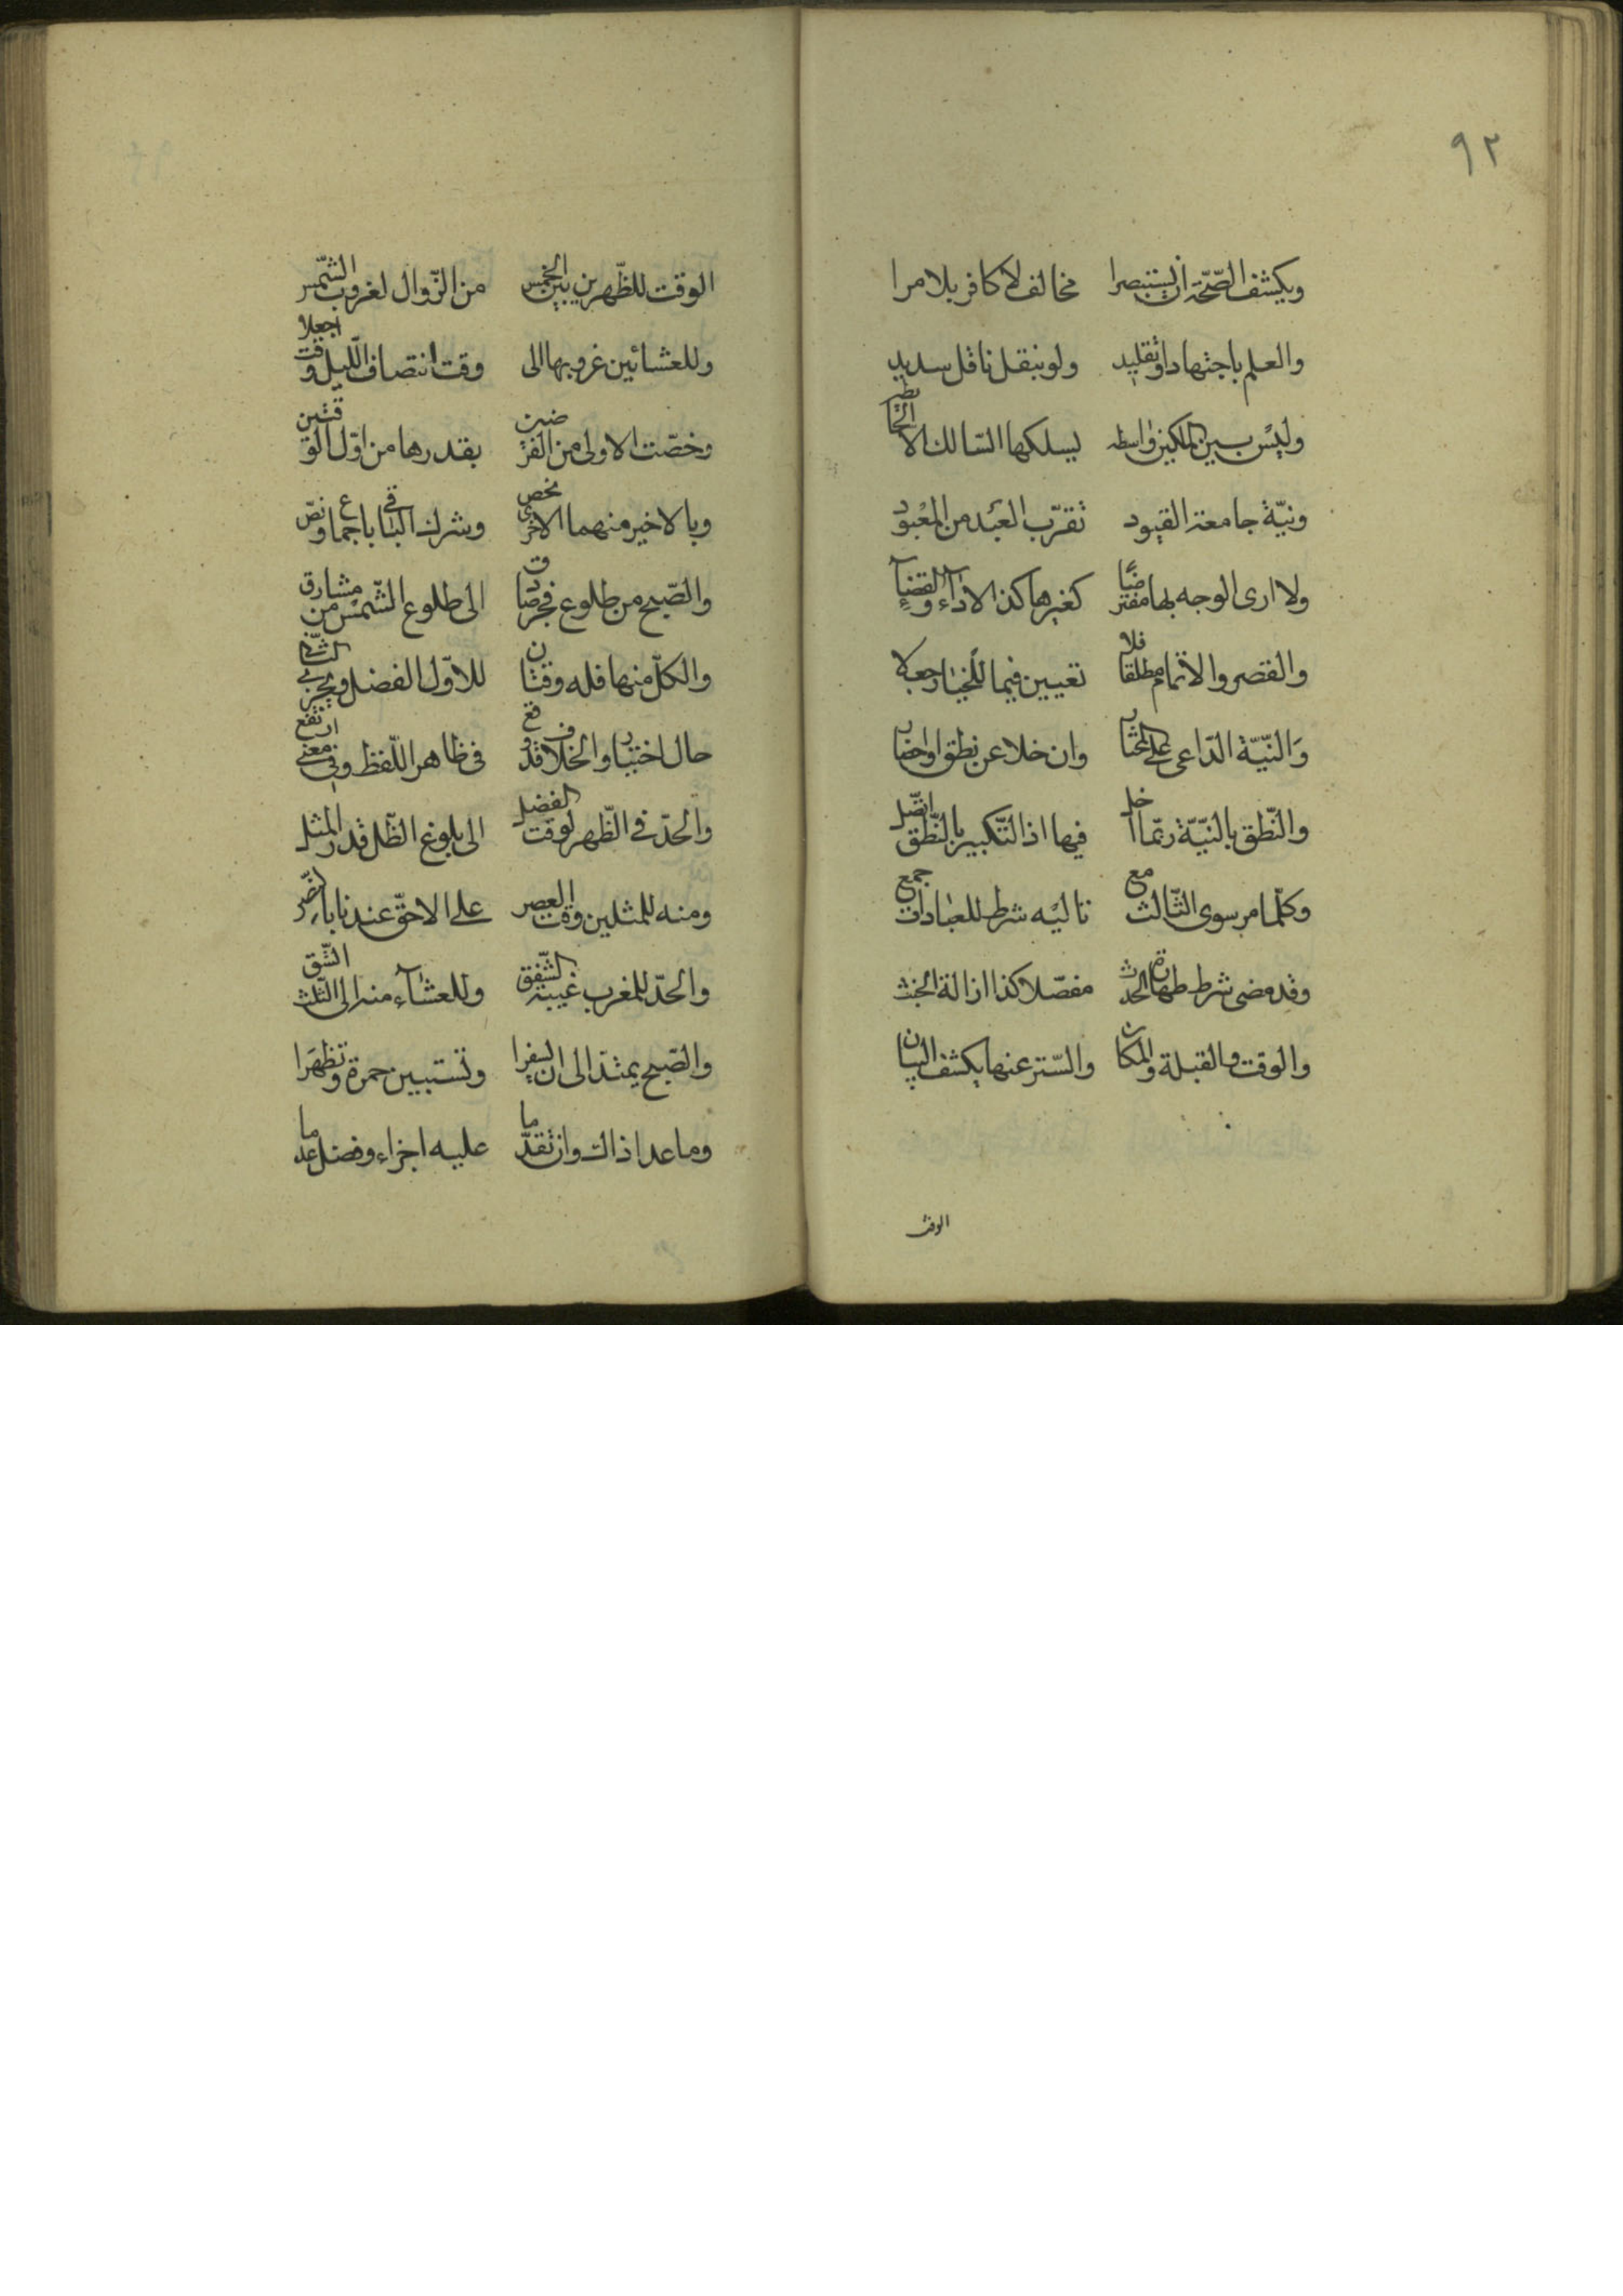 ٩٢
ويكشف الصّحّة ان يستبصرا مخالف لا كافر بلا مرا
والعلم باجتهاد او تقليد ولو بنقل ناقل سديد
وليس بين المسلكين واسطه يسلكها السّالك الا الخابطه
ونيّة جامعة القيود تقرّب العبد من المعبود
ولا ارى الوجه بها مفترضا كغيرها كذا الاداء والقضاء
والقصر والاتمام مطلقا فلا تعيين فيما للخيار جعلا
وَالنّيّة الدّاعى على المختار وان خلا عن نطق او احضار
والنّطق بالنيّة ربّما اخل فيها اذا التّكبير بالنّطق اتّصل
وكلّما مر سوى الثّالث مع تاليه شرط للعبادات جمع
وقد مضى شرط طهارة الحدث مفصّلا كذا ازالة الخبث
والوقت والقبلة والمكان والسّتر عنها يكشف البيان
الوقت
الوقت للظّهرين بين الخمس من الزّوال لغروب الشّمس
وللعشائين غروبها الى وقت انتصاف اللّيل وقت اجعلا
وخصّت الاولى من الفرضين بقدرها من اوّل الوقتين
وبالاخير منهما الاخرى تخص ويشرك الباقى باجماع ونصّ
والصّبح من طلوع فجر صادق الى طلوع الشّمس من مشارق
والكلّ منها فله وقتان للاوّل الفضل ويجزى الثّانى
حال اختيار والخلاف قد وقع فى ظاهر اللّفظ وفى معنى ارتفع
والحدّ فى الظّهر لوقت الفضل الى بلوغ الظّل قدر المثل
ومنه للمثلين وقت العصر على الاحقّ عندنا بالنّصر
والحدّ للمغرب غيبة الشّفق وللعشآء منه الى الثّلث الشّق
والصّبح يمتدّ الى ان يسفرا وتستبين حمرة وتظهَرا
وما عدا ذاك وان تقدّما عليه اجزاء وفضل عدما